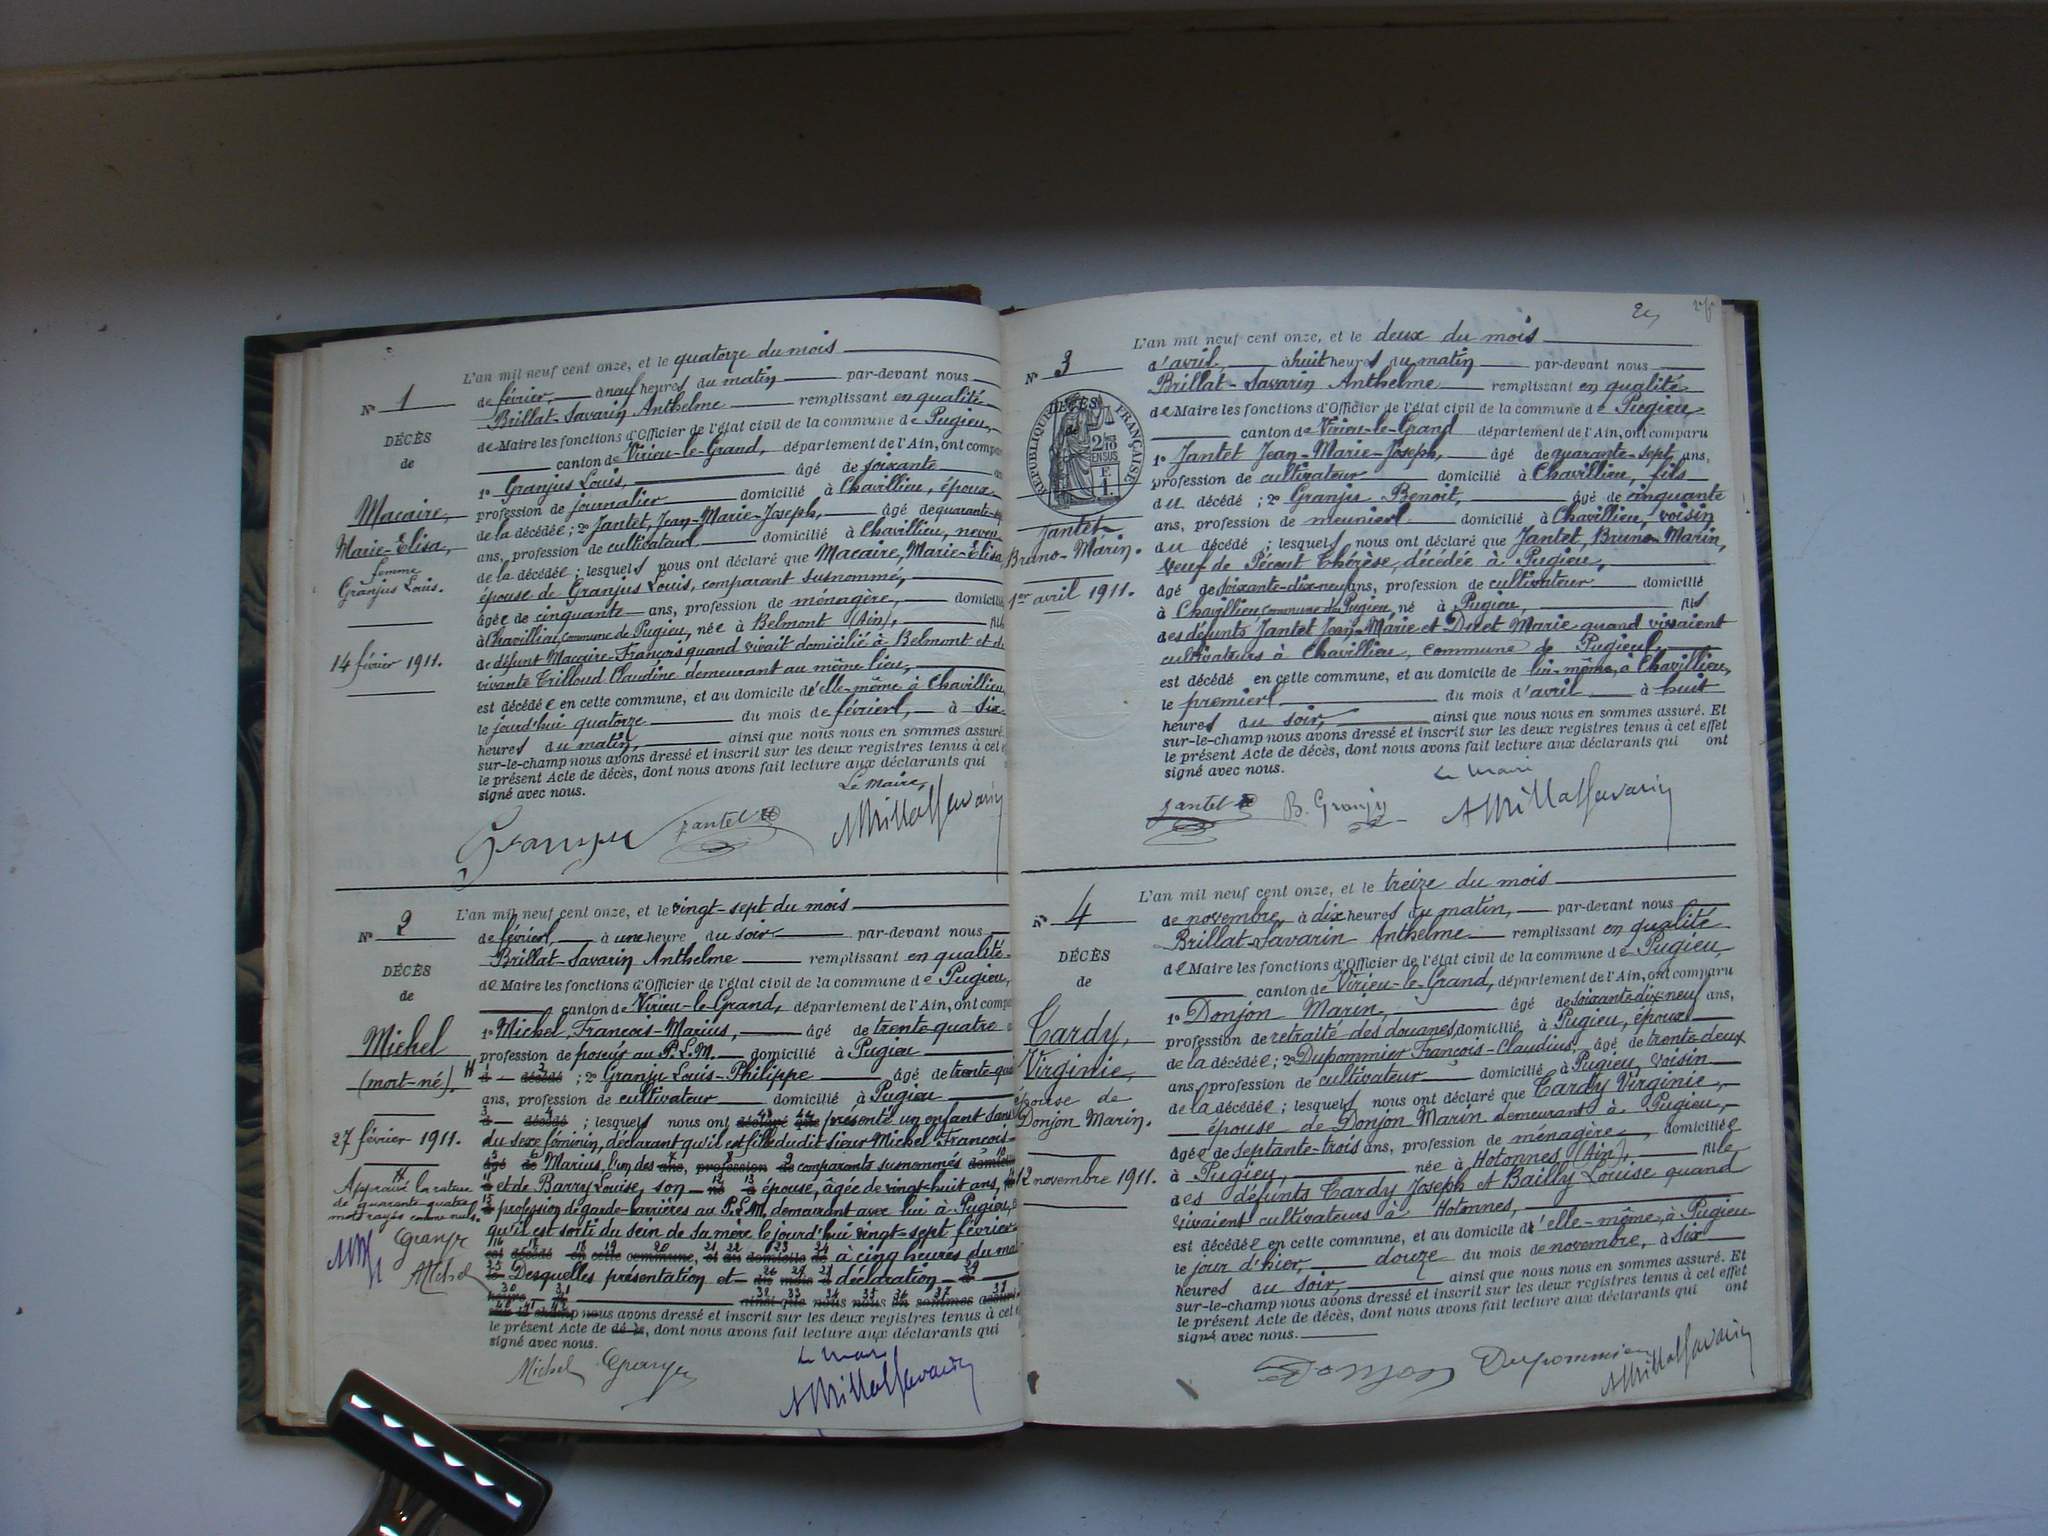 L'an mil neuf cent onze, et le quatorze du mois
N° 1
de février, à neuf heures du matin par-devant nous
Brillat-Savarin Anthelme remplissant en qualité
DÉCÈS
de Maire les fonctions d'Officier de l'état civil de la commune de Pugieu,
de
canton de Virieu-le-Grand, département de l'Ain, ont compa
1° Granjus Louis, âgé de soixante
Macaire,
profession de journalier domicilié à Chavillieu, époux
Marie-Elisa,
de la décédée; 2° Jantet, Jean-Marie-Joseph, âgé de quarante-sep
femme
ans, profession de cultivateur domicilié à Chavillieu, neveu
Granjus Louis.
de la décédée; lesquels nous ont déclaré que Macaire, Marie-Elisa
épouse de Granjus Louis, comparant susnommé,
âgée de cinquante ans, profession de ménagère, domicilié
à Chavillieu, commune de Pugieu, née à Belmont (Ain), fille
14 février 1911.
de défunt Macaire François quand vivait domicilié à Belmont et de
vivante Trilloud Claudine demeurant au même lieu,
est décédée en cette commune, et au domicile d'elle-même à Chavillieu
le jourd'hui quatorze du mois de février, à six
heures du matin, ainsi que nous nous en sommes assuré.
sur-le-champ nous avons dressé et inscrit sur les deux registres tenus à cet e
le présent Acte de décès, dont nous avons fait lecture aux déclarants qui
signé avec nous.
Le Maire,
Granju Jantet ABrillatSavarin
L'an mil neuf cent onze, et le vingt-sept du mois
N° 2
de février, à une heure du soir par-devant nous
Brillat-Savarin Anthelme remplissant en qualité
DÉCÈS
de Maire les fonctions d'Officier de l'état civil de la commune de Pugieu,
de
canton de Virieu-le-Grand, département de l'Ain, ont compa
1° Michel, François-Marius, âgé de trente-quatre
Michel
profession de poseur au P.L.M. domicilié à Pugieu
(mort-né).
à décédé; 2° Granju Louis-Philippe âgé de trente-qua
ans, profession de cultivateur domicilié à Pugieu
décédé; lesquels nous ont déclaré que présenté un enfant sans
27 février 1911.
du sexe féminin, déclarant qu'il est fille du dit sieur Michel François-
âgé de Marius, l'un des ans, profession de comparants susnommés domicilié
Approuvé la rature
à et de Barry Louise, son né à épouse, âgée de vingt-huit ans,
de quarante-quatre
profession de garde-barrières au P.L.M. demeurant avec lui à Pugieu,
mots rayés comme nuls.
qu'il est sorti du sein de sa mère le jourd'hui vingt-sept février
Granju
est décédé en cette commune, et au domicile de à cinq heures du mat
AMichel
le Desquelles présentation et du mois d déclaration à
heure du ainsi que nous nous en sommes assuré
sur le champ nous avons dressé et inscrit sur les deux registres tenus à cet
le présent Acte de décès, dont nous avons fait lecture aux déclarants qui
signé avec nous.
Le Maire
Michel Granju ABrillatSavarin
25
L'an mil neuf cent onze, et le deux du mois
N° 3
d'avril, à huit heures du matin par-devant nous
Brillat-Savarin Anthelme remplissant en qualité
DÉCÈS
de
RÉPUBLIQUE FRANÇAISE
2/10 EN SUS
F. 1.
de Maire les fonctions d'Officier de l'état civil de la commune de Pugieu
canton de Virieu-le-Grand département de l'Ain, ont comparu
1° Jantet Jean-Marie-Joseph, âgé de quarante-sept ans,
profession de cultivateur domicilié à Chavillieu, fils
du décédé; 2° Granju Benoit, âgé de cinquante
Jantet
ans, profession de meunier domicilié à Chavillieu, voisin
Bruno-Marin.
du décédé; lesquels nous ont déclaré que Jantet, Bruno-Marin,
veuf de Pécout Thérèse, décédée à Pugieu,
âgé de soixante-dix-neuf ans, profession de cultivateur domicilié
1er avril 1911.
à Chavillieu, commune de Pugieu, né à Pugieu, fils
des défunts Jantet Jean-Marie et Duret Marie quand vivaient
cultivateurs à Chavillieu, commune de Pugieu,
est décédé en cette commune, et au domicile de lui-même, à Chavillieu,
le premier du mois d'avril à huit
heures du soir, ainsi que nous nous en sommes assuré. Et
sur-le-champ nous avons dressé et inscrit sur les deux registres tenus à cet effet
le présent Acte de décès, dont nous avons fait lecture aux déclarants qui ont
signé avec nous.
Le Maire
Jantet B. Granju ABrillatSavarin
L'an mil neuf cent onze, et le treize du mois
N° 4
de novembre, à dix heures du matin, par-devant nous
Brillat-Savarin Anthelme remplissant en qualité
DÉCÈS
de Maire les fonctions d'Officier de l'état civil de la commune de Pugieu,
de
canton de Virieu-le-Grand, département de l'Ain, ont comparu
1° Donjon Marin, âgé de soixante-dix-neuf ans,
Tardy,
profession de retraité des douanes, domicilié à Pugieu, époux
Virginie,
de la décédée; 2° Dupommier François-Claudius, âgé de trente-deux
ans, profession de cultivateur domicilié à Pugieu, voisin
épouse de
de la décédée; lesquels nous ont déclaré que Tardy Virginie,
Donjon Marin.
épouse de Donjon Marin demeurant à Pugieu,
âgée de septante-trois ans, profession de ménagère, domiciliée
12 novembre 1911.
à Pugieu, née à Hotonnes (Ain), fille
des défunts Tardy Joseph et Bailly Louise quand
vivaient cultivateurs à Hotonnes,
est décédée en cette commune, et au domicile d'elle-même, à Pugieu
le jour d'hier, douze du mois de novembre, à six
heures du soir, ainsi que nous nous en sommes assuré. Et
sur-le-champ nous avons dressé et inscrit sur les deux registres tenus à cet effet
le présent Acte de décès, dont nous avons fait lecture aux déclarants qui ont
signé avec nous.
Dupommier ABrillatSavarin